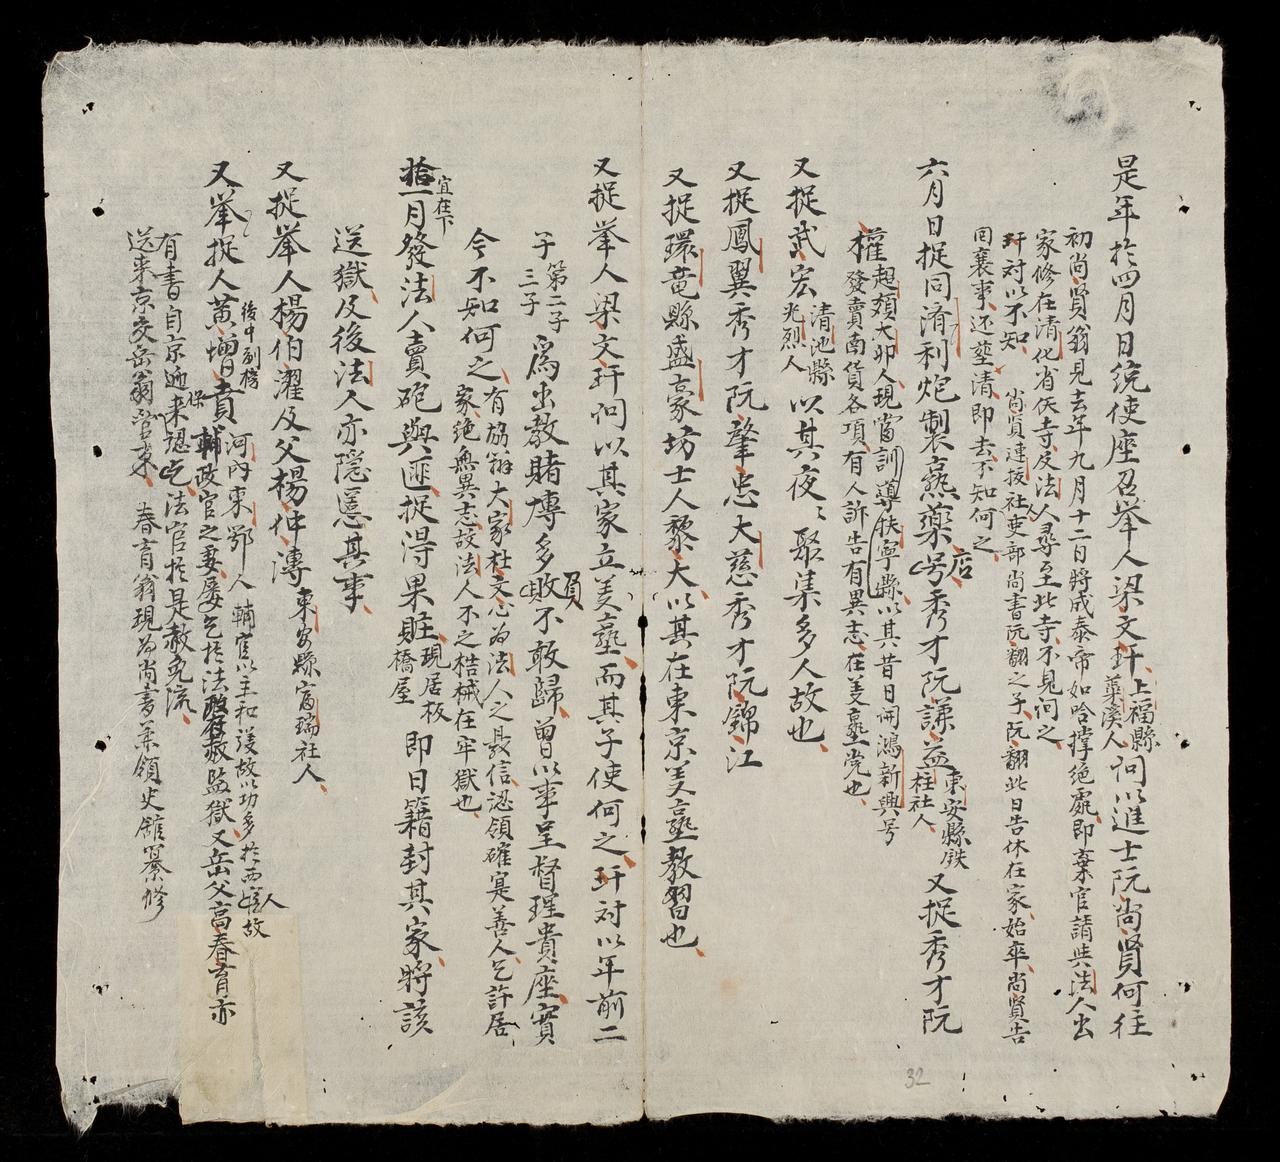 是年於四月日統使座召举人梁文玕上福縣藁溪人问以進士阮尚賢何往
初尚賢翁見去年九月十二日將成泰帝如哈撑絶處即棄官請與法人出
家修在清化省佚寺及法人尋至此寺不見问之
玕対以不知尚賢連拔社人吏部尚書阮翻之子阮翻此日告休在家始卒尚賢告
囘襄事还塟清即去不知何之
六月日捉同濟利炮製熟藥店号秀才阮謙益東安縣鉄柱社人又捉秀才阮
權起頞大夘人現當訓導秩寧縣以其昔日開鴻新興号
發賣南貨各項有人訴告有異志在美塾党也
又捉武宏清池縣光烈人以其夜々聚集多人故也
又捉鳳翼秀才阮肇忠大慈秀才阮錦江
又捉環竜縣盛豪坊士人黎大以其在東京美塾教習也
又捉举人梁文玕问以其家立美塾而其子使何之玕対以年前二
子第二子三子為出教賭博多敗負不敢歸曾以事呈督理貴座實
今不知何之有旂翁大家杜文心為法人之最信認領確寔善人乞許居
家絶無異志故法人不之梏械在牢獄也
拾一月宜在下發法人賣砲與匪捉得果賍現居板橋屋即日籍封其家將該
送獄及後法人亦隠慝其事
又捉举人楊伯濯及父楊仲溥東安縣富瑞社人
又举捉人黄增賁後中副榜河内東鄂人輔官以主和議故以功多於西人官故
保輔政官之妻屡乞於法政府赦監獄又岳父高春育亦
有書自京迊来認乞法官於是赦免流
送来京交岳翁管束春育翁現為尚書兼領史舘纂修
32